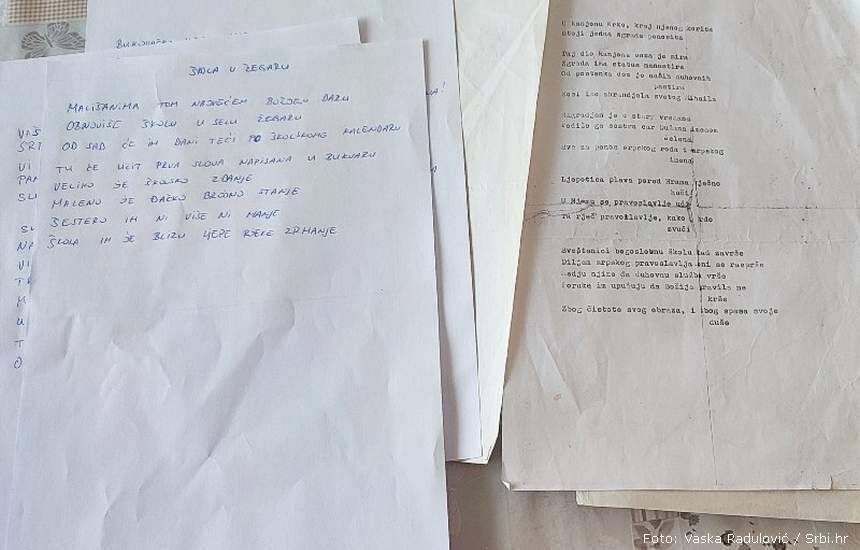 ŠKOLA U ŽEGARU
MALIŠANIMA TOM NAJVEĆEM BOŽJEM DARU
OBNOVIŠE ŠKOLU U SELU ŽEGARU
OD SAD ĆE IM DANI TEĆI PO ŠKOLSKOME KALENDARU
TU ĆE UČIT PRVA SLOVA NAPISANA U BUKVARU
VELIKO JE ŠKOLSKO ZDANJE
MALENO JE ĐAČKO BROJNO STANJE
ŠESTERO IH NI VIŠE NI MANJE
ŠKOLA IM JE BLIZU LJEPE RJEKE ZRMANJE
U kanjonu Krke, kraj njenog korita
Stoji jedna zgrada ponosita
Taj dio kanjona oaza je mira
Zgrada ima status manastira
Od postanka ove je naših duhovnih
pastira
Nosi ime Akrandjela svetog Mihaila
Sagradjen je u stara vremena
vodilo ga sestra car Dušana imenom
Jelena
Sve za ponos srpskog roda i srpskog
imena
Ljepotica plava pored Hrama vječno
huči
U Njemu se pravoslavlje uči
Ta rječ pravoslavlje, kako tvrdo
zvuči
Sveštenici bogoslovnu školu kad završe
Diljem srpskog pravoslavlja oni se rasprše
Medju njima da duhovnu službu vrše
Poruke im upućuju da Božija pravila ne
krše
Zbog čistote svog obraza, i zbog spasa svoje
duše
Foto: Vaska Radulović / Srbi.hr